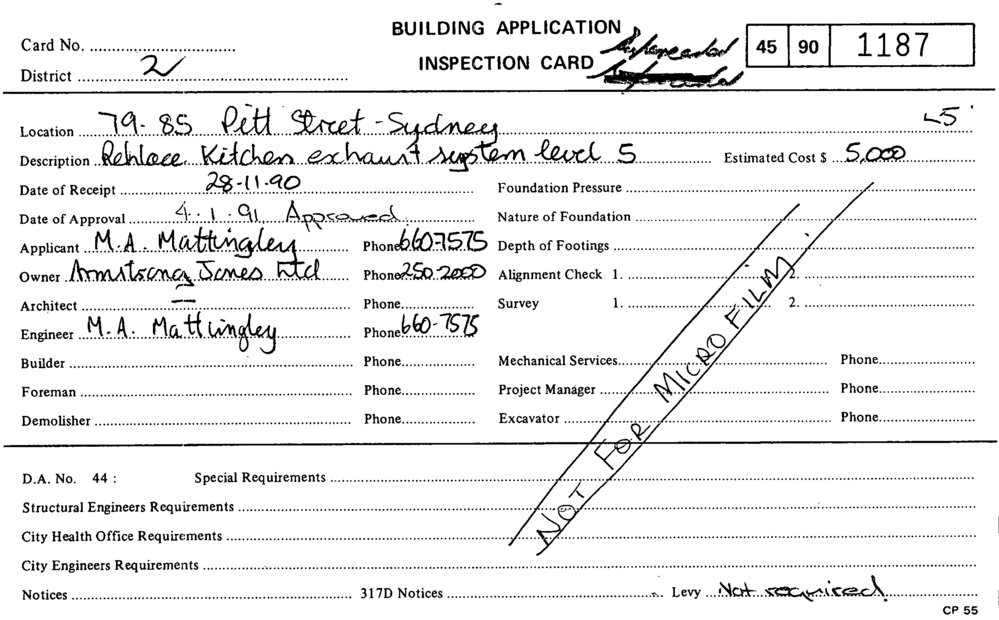 BUILDING APPLICATION
INSPECTION CARD
45 90 1187
Card No.
District 2
Location 79-85 Pitt Street - Sydney L5
Description Replace Kitchen exhaust system level 5 Estimated Cost $ 5,000
Date of Receipt 28-11-90 Foundation Pressure
Date of Approval 4.1.91 Approved Nature of Foundation
Applicant M.A. Mattingley Phone 660-7575 Depth of Footings
Owner Armstrong Jones Ltd Phone 250-2000 Alignment Check 1. 2.
Architect — Phone Survey 1. 2.
Engineer M.A. Mattingley Phone 660-7575
Builder Phone Mechanical Services Phone
Foreman Phone Project Manager Phone
Demolisher Phone Excavator Phone
NOT FOR MICROFILM
D.A. No. 44 : Special Requirements
Structural Engineers Requirements
City Health Office Requirements
City Engineers Requirements
Notices 317D Notices Levy Not required
CP 55